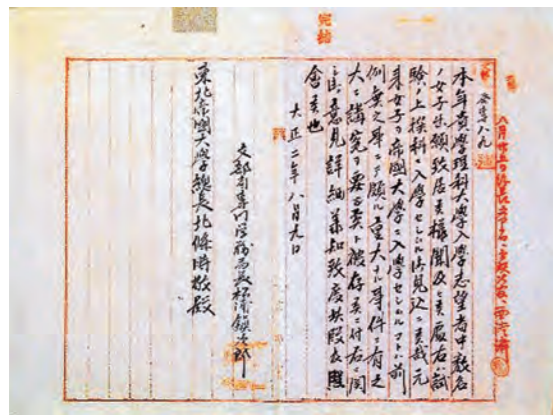 完結
本年貴學理科大學入學志望者中数名
ノ女子出願致居候様聞及ヒ候處右ハ試
驗ノ上撰科ニ入學セシムル御見込ニ候哉元
来女子ヲ帝國大學ニ入學セシムルコトハ前
例無之事ニテ頗ル重大ナル事件ニ有之
大ニ講究ヲ要シ候ト被存候ニ付右ニ関
シ御意見詳細承知致度此段及照
會候也
大正二年八月九日
文部省専門学務局長松浦鎮次郎
東北帝國大學總長北條時敬殿